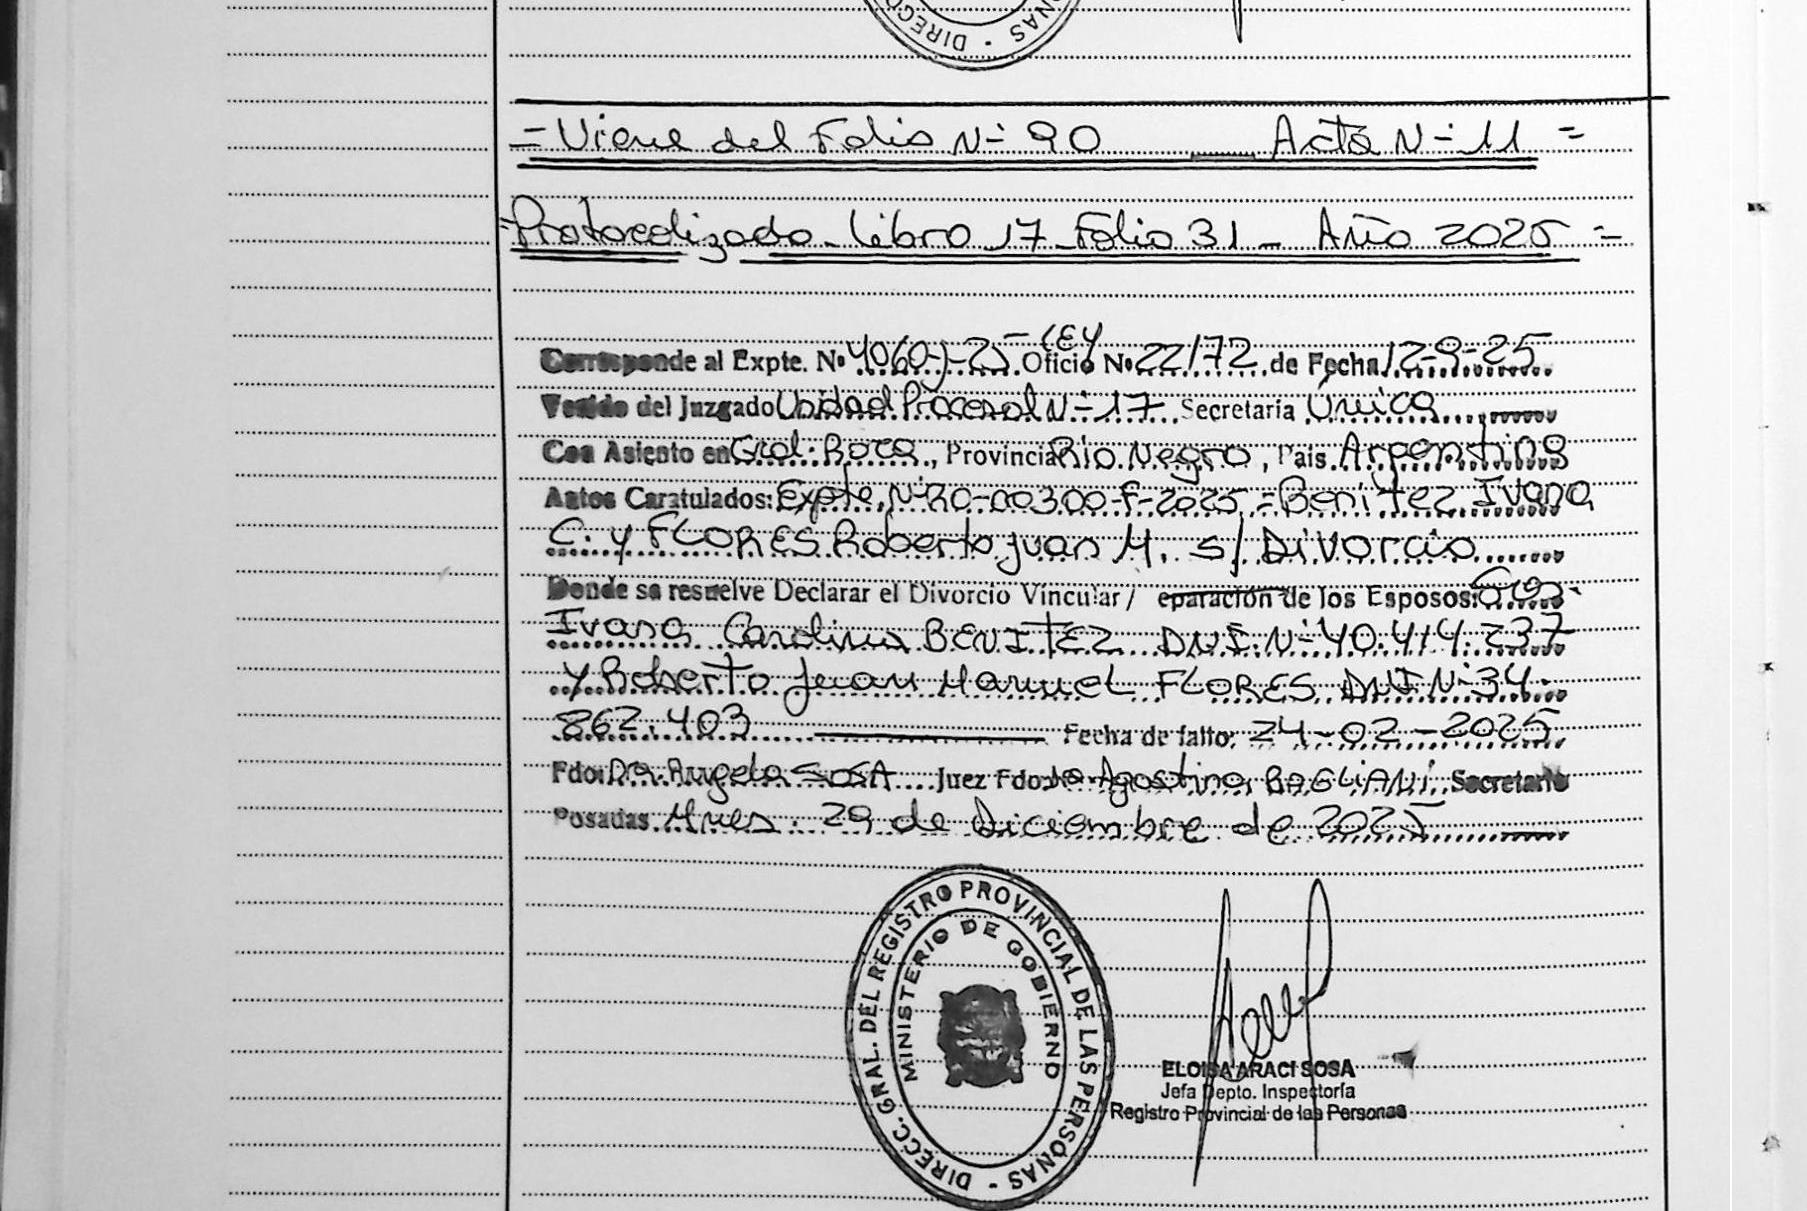 DIRECC
NAS -
= Viene del Folio N- 90 ___ Acta N- 11 =
= Protocolizado - Libro 17 - Folio 31 - Año 2025 =
Corresponde al Expte. Nº 4060-J-25 - LEY Oficio Nº 22/72 de Fecha 12-9-25
Venido del Juzgado Unidad Procesal N- 17 Secretaría Única
Con Asiento en Gral. Roca, Provincia Río Negro, País Argentina
Autos Caratulados: Expte. N- RO-00300-F-2025 = Benítez Ivana
C. y FLORES Roberto Juan M. s/ Divorcio
Donde se resuelve Declarar el Divorcio Vincular / eparación de los Esposos:
Ivana Carolina BENITEZ DNI N- 40.414.237
y Roberto Juan Manuel FLORES DNI N- 34.
862.403 Fecha de fallo: 24-02-2025
Fdo: Dra. Angela SOSA Juez Fdo: Agostina BAGLIANI Secretaria
Posadas Mnes. 29 de Diciembre de 2025
DIRECC. GRAL. DEL REGISTRO PROVINCIAL DE LAS PERSONAS -
MINISTERIO DE GOBIERNO
ELOISA ARACI SOSA
Jefa Depto. Inspectoría
Registro Provincial de las Personas